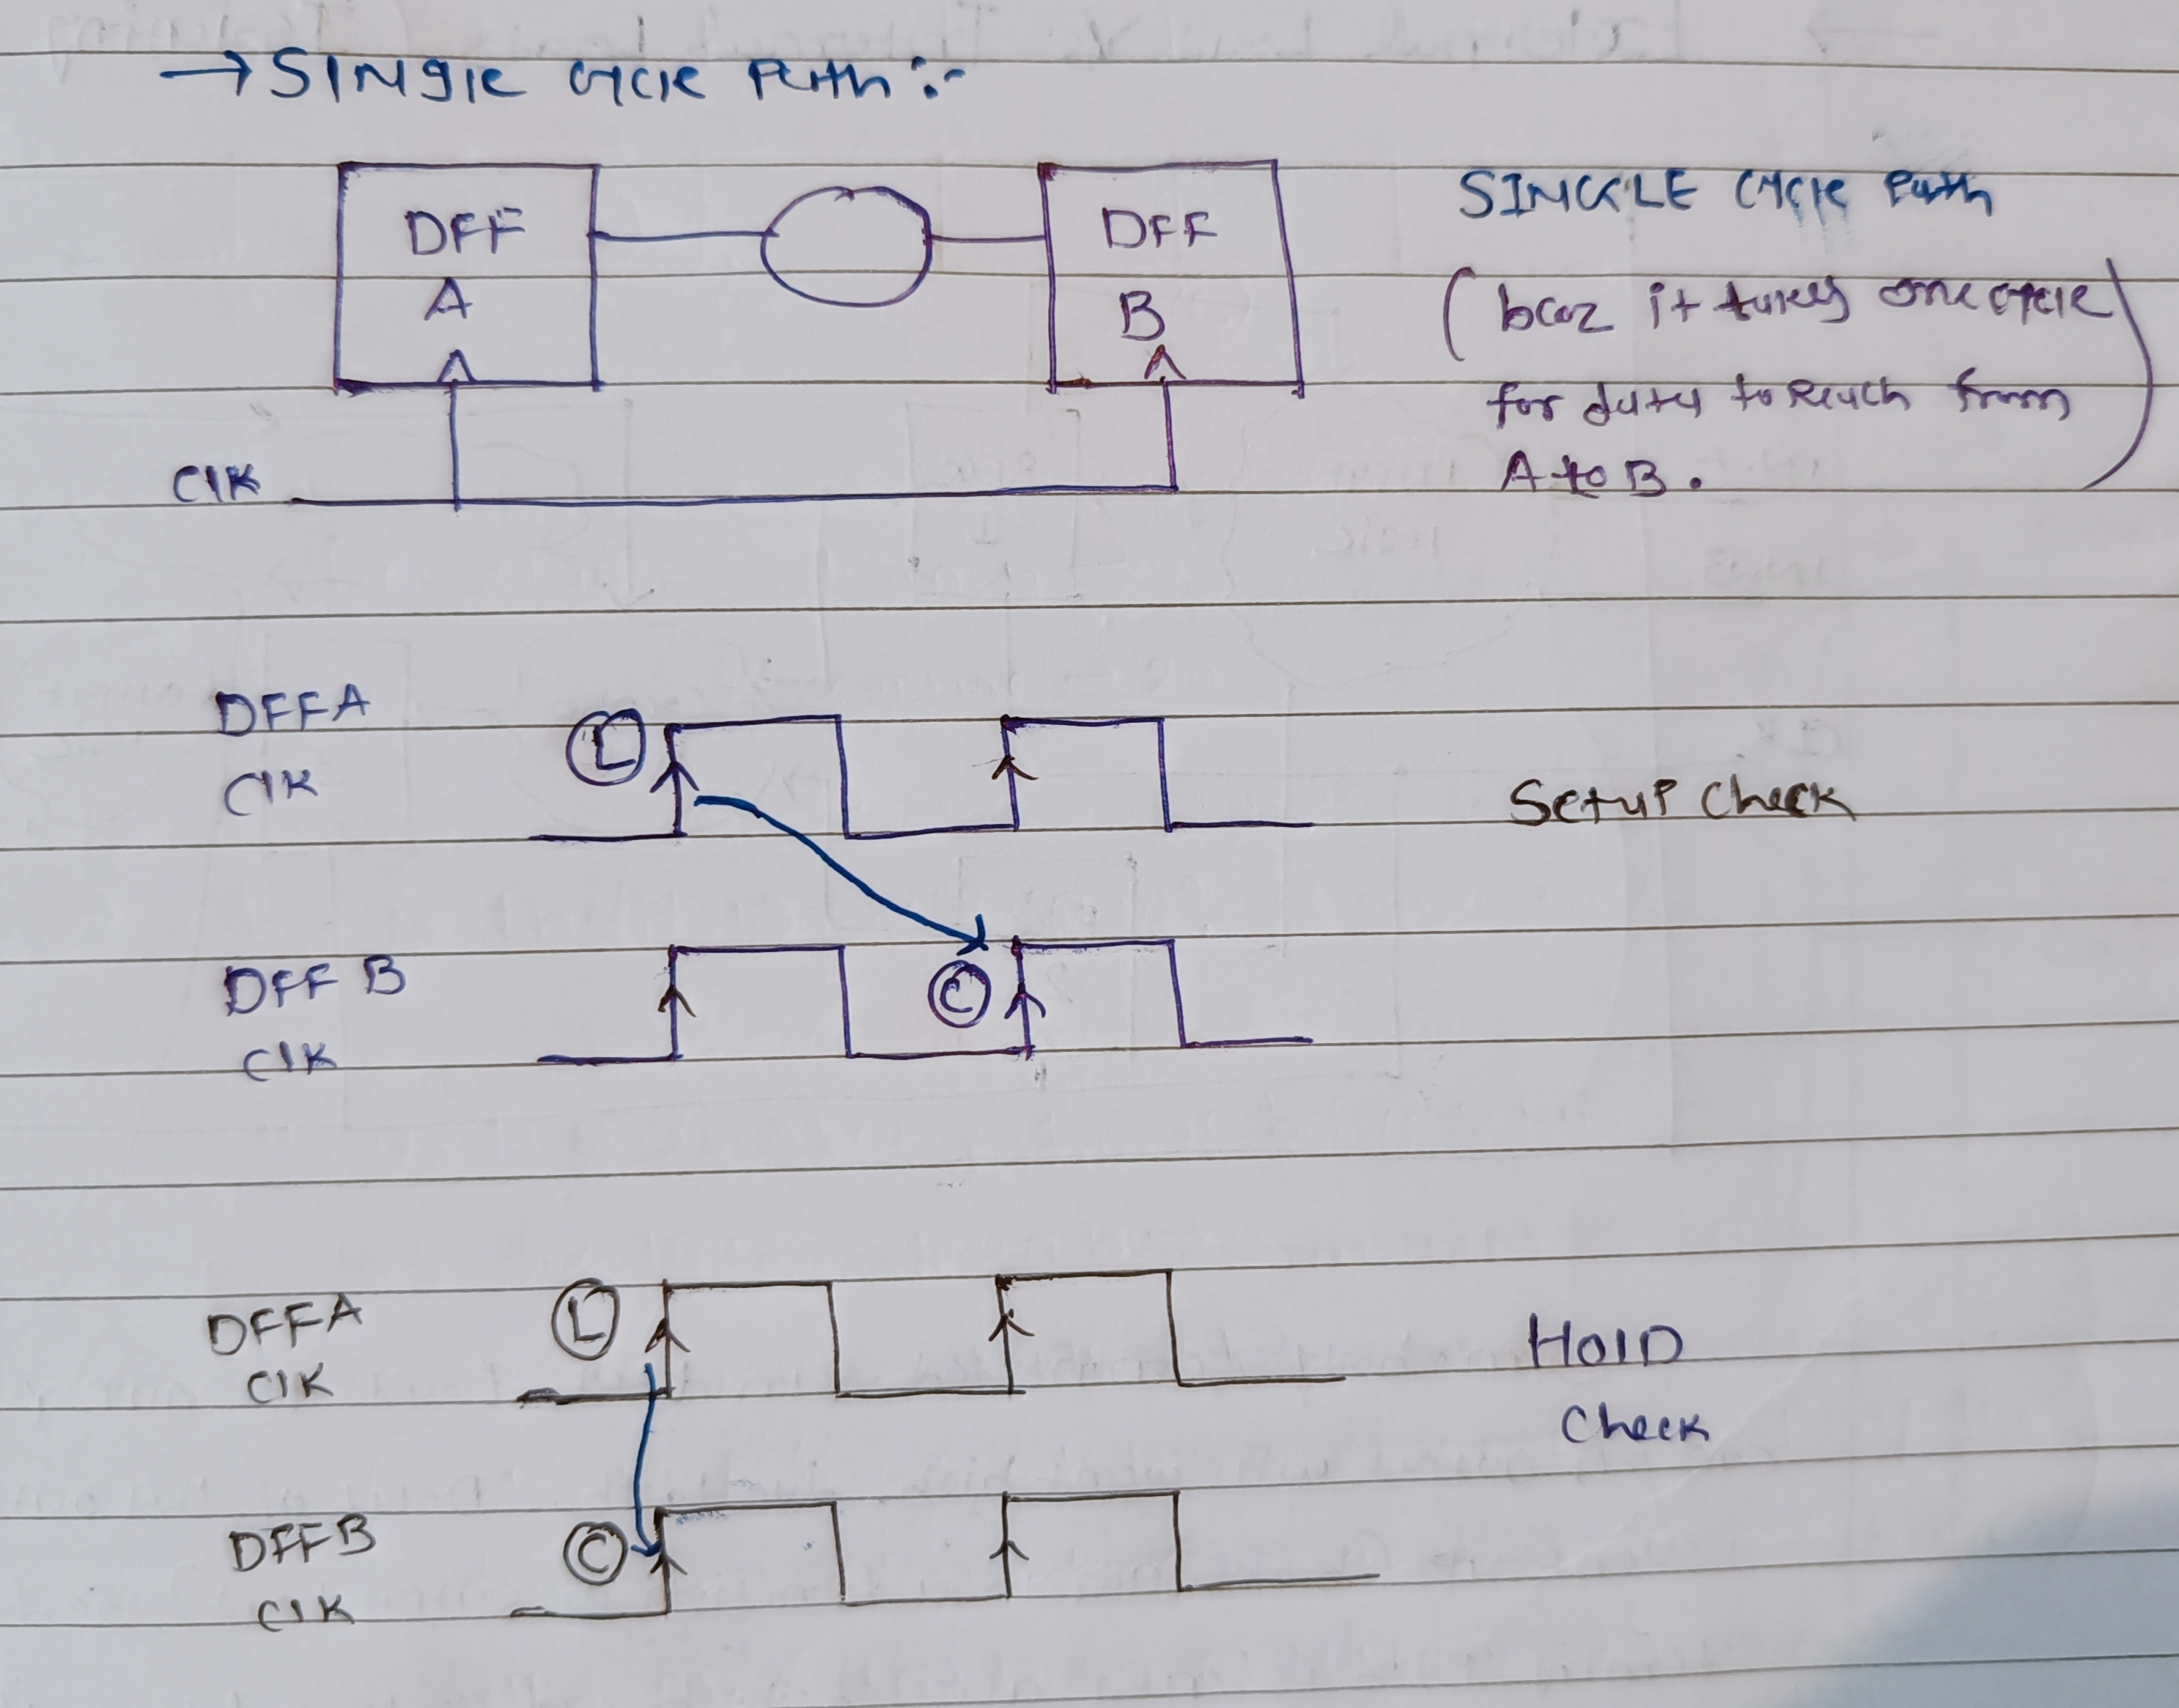 → SINGle cycle Path :-
DFF
A
DFF
B
SINGLE cycle Path
(bcoz it takes one cycle
for data to Reach from
A to B.)
Clk
DFFA
Clk
L
Setup Check
DFF B
Clk
C
DFFA
Clk
L
HOlD
Check
DFFB
Clk
C